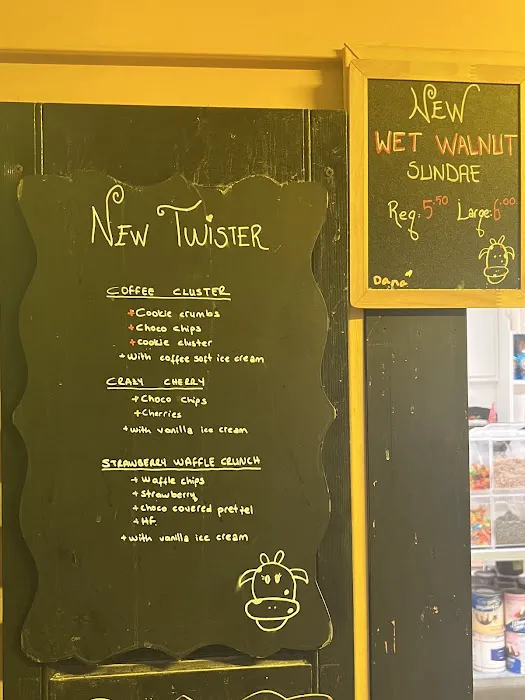 NEW TWISTER
COFFEE CLUSTER
+Cookie crumbs
+Choco chips
+cookie cluster
+with coffee soft ice cream
CRAZY CHERRY
+Choco chips
+Cherries
+with vanilla ice cream
STRAWBERRY WAFFLE CRUNCH
+Waffle chips
+Strawberry
+choco covered pretzel
+HF.
+with vanilla ice cream
NEW
WET WALNUT
SUNDAE
Reg. 5.50 Large: 6.00
Dana